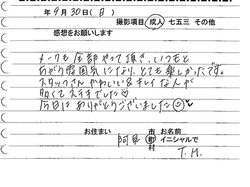 年 9月30日(日)
撮影項目 成人 七五三 その他
感想をお願いします
メークも全部やって頂き、いつもと
ちがう雰囲気になり、とても楽しかったです。
スタッフさんかわいい&キレイな人が
多くてステキでした♡
今日はありがとうございました
お住まい 阿見 市 町 村 お名前 イニシャルで
T.M.